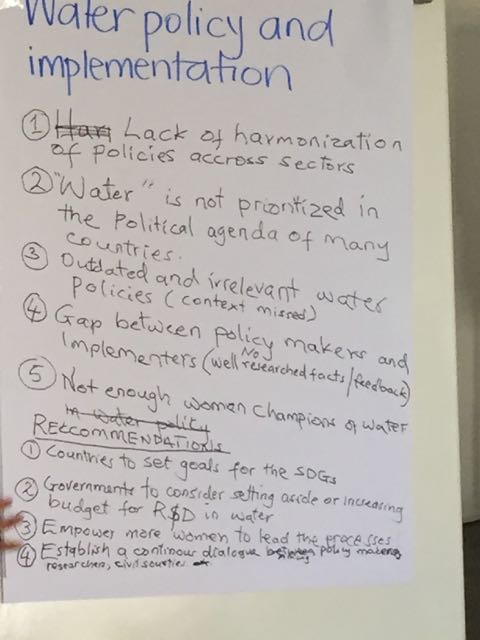 Water policy and
implementation
① Lack of harmonization
of policies accross sectors
② "Water" is not prioritized in
the political agenda of many
countries.
③ Outdated and irrelevant water
policies (context missed)
④ Gap between policy makers and
Implementers (well No researched facts/feedback)
⑤ Not enough women champions of water
in water policy
RECCOMMENDATIONS
① Countries to set goals for the SDGs
② Governments to consider setting aside or increasing
budget for R$D in water
③ Empower more women to lead the processes
④ Establish a continous dialogue policy makers
researchers, civil